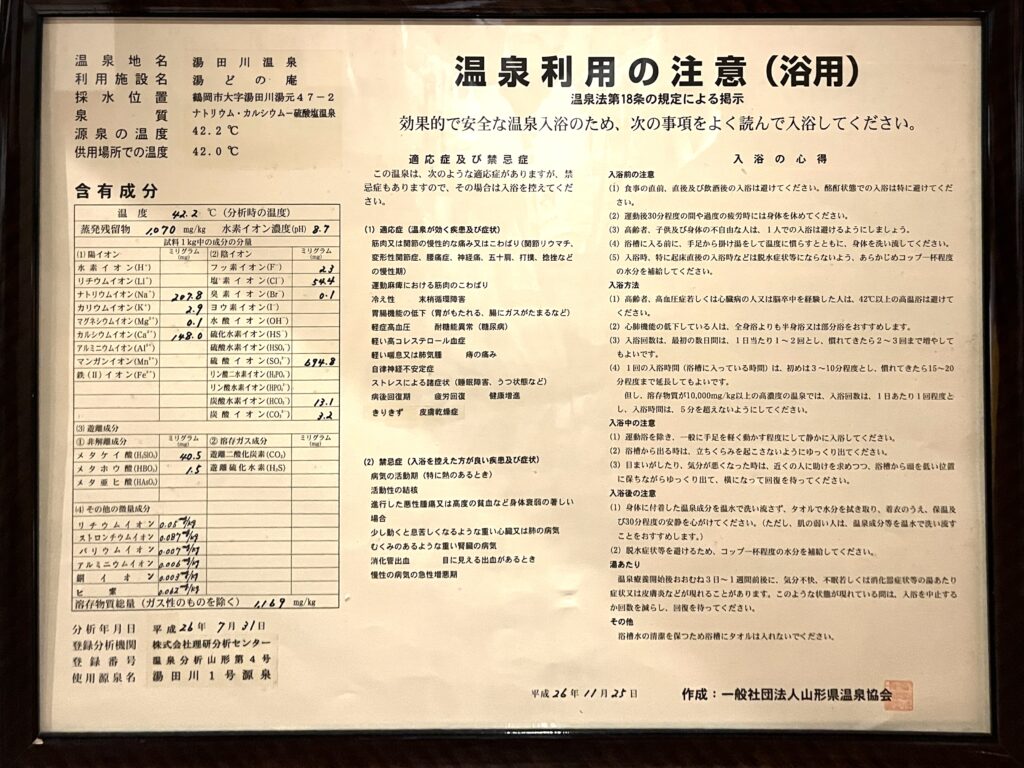 温泉地名 湯田川温泉
利用施設名 湯どの庵
採水位置 鶴岡市大字湯田川湯元47-2
泉質 ナトリウム・カルシウム-硫酸塩温泉
源泉の温度 42.2℃
供用場所での温度 42.0℃
含有成分
温度 42.2 ℃ (分析時の温度)
蒸発残留物 1,070 mg/kg 水素イオン濃度(pH) 8.7
試料1kg中の成分の分量
(1)陽イオン ミリグラム(mg) (2)陰イオン ミリグラム(mg)
水素イオン(H⁺) フッ素イオン(F⁻) 2.3
リチウムイオン(Li⁺) 塩素イオン(Cl⁻) 54.4
ナトリウムイオン(Na⁺) 207.8 臭素イオン(Br⁻) 0.1
カリウムイオン(K⁺) 2.9 ヨウ素イオン(I⁻)
マグネシウムイオン(Mg²⁺) 0.1 水酸イオン(OH⁻)
カルシウムイオン(Ca²⁺) 148.0 硫化水素イオン(HS⁻)
アルミニウムイオン(Al³⁺) 硫酸水素イオン(HSO₄⁻)
マンガンイオン(Mn²⁺) 硫酸イオン(SO₄²⁻) 694.8
鉄(II)イオン(Fe²⁺) リン酸二水素イオン(H₂PO₄⁻)
リン酸水素イオン(HPO₄²⁻)
炭酸水素イオン(HCO₃⁻) 13.1
炭酸イオン(CO₃²⁻) 3.2
(3)遊離成分
①非解離成分 ミリグラム(mg) ②溶存ガス成分 ミリグラム(mg)
メタケイ酸(H₂SiO₃) 40.5 遊離二酸化炭素(CO₂)
メタホウ酸(HBO₂) 1.5 遊離硫化水素(H₂S)
メタ亜ヒ酸(HAsO₂)
(4)その他の微量成分
リチウムイオン 0.05mg/kg
ストロンチウムイオン 0.087mg/kg
バリウムイオン 0.007mg/kg
アルミニウムイオン 0.006mg/kg
銅イオン 0.003mg/kg
ヒ素 0.062mg/kg
溶存物質総量(ガス性のものを除く) 1,169 mg/kg
分析年月日 平成26年7月31日
登録分析機関 株式会社理研分析センター
登録番号 温泉分析山形第4号
使用源泉名 湯田川1号源泉
温泉利用の注意(浴用)
温泉法第18条の規定による掲示
効果的で安全な温泉入浴のため、次の事項をよく読んで入浴してください。
適応症及び禁忌症
この温泉は、次のような適応症がありますが、禁
忌症もありますので、その場合は入浴を控えてくだ
さい。
(1)適応症(温泉が効く疾患及び症状)
筋肉又は関節の慢性的な痛み又はこわばり(関節リウマチ、
変形性関節症、腰痛症、神経痛、五十肩、打撲、捻挫など
の慢性期)
運動麻痺における筋肉のこわばり
冷え性 末梢循環障害
胃腸機能の低下(胃がもたれる、腸にガスがたまるなど)
軽症高血圧 耐糖能異常(糖尿病)
軽い高コレステロール血症
軽い喘息又は肺気腫 痔の痛み
自律神経不安定症
ストレスによる諸症状(睡眠障害、うつ状態など)
病後回復期 疲労回復 健康増進
きりきず 皮膚乾燥症
(2)禁忌症(入浴を控えた方が良い疾患及び症状)
病気の活動期(特に熱のあるとき)
活動性の結核
進行した悪性腫瘍又は高度の貧血など身体衰弱の著しい
場合
少し動くと息苦しくなるような重い心臓又は肺の病気
むくみのあるような重い腎臓の病気
消化管出血 目に見える出血があるとき
慢性の病気の急性増悪期
入浴の心得
入浴前の注意
(1)食事の直前、直後及び飲酒後の入浴は避けてください。酩酊状態での入浴は特に避けてくだ
さい。
(2)運動後30分程度の間や過度の疲労時には身体を休めてください。
(3)高齢者、子供及び身体の不自由な人は、1人での入浴は避けるようにしましょう。
(4)浴槽に入る前に、手足から掛け湯をして温度に慣らすとともに、身体を洗い流してください。
(5)入浴時、特に起床直後の入浴時などは脱水症状等にならないよう、あらかじめコップ一杯程度
の水分を補給してください。
入浴方法
(1)高齢者、高血圧症若しくは心臓病の人又は脳卒中を経験した人は、42℃以上の高温浴は避けて
ください。
(2)心肺機能の低下している人は、全身浴よりも半身浴又は部分浴をおすすめします。
(3)入浴回数は、最初の数日間は、1日当たり1~2回とし、慣れてきたら2~3回まで増やして
もよいです。
(4)1回の入浴時間(浴槽に入っている時間)は、初めは3~10分程度とし、慣れてきたら15~20
分程度まで延長してもよいです。
但し、溶存物質が10,000mg/kg以上の高濃度の温泉では、入浴回数は、1日あたり1回程度と
し、入浴時間は、5分を超えないようにしてください。
入浴中の注意
(1)運動浴を除き、一般に手足を軽く動かす程度にして静かに入浴してください。
(2)浴槽から出る時は、立ちくらみを起こさないようにゆっくり出てください。
(3)目まいがしたり、気分が悪くなった時は、近くの人に助けを求めつつ、浴槽から頭を低い位置
に保ちながらゆっくり出て、横になって回復を待ってください。
入浴後の注意
(1)身体に付着した温泉成分を温水で洗い流さず、タオルで水分を拭き取り、着衣のうえ、保温及
び30分程度の安静を心がけてください。(ただし、肌の弱い人は、温泉成分等を温水で洗い流す
ことをおすすめします。)
(2)脱水症状等を避けるため、コップ一杯程度の水分を補給してください。
湯あたり
温泉療養開始後おおむね3日~1週間前後に、気分不快、不眠若しくは消化器症状等の湯あたり
症状又は皮膚炎などが現れることがあります。このような状態が現れている間は、入浴を中止する
か回数を減らし、回復を待ってください。
その他
浴槽水の清潔を保つため浴槽にタオルは入れないでください。
平成26年11月25日 作成:一般社団法人山形県温泉協会